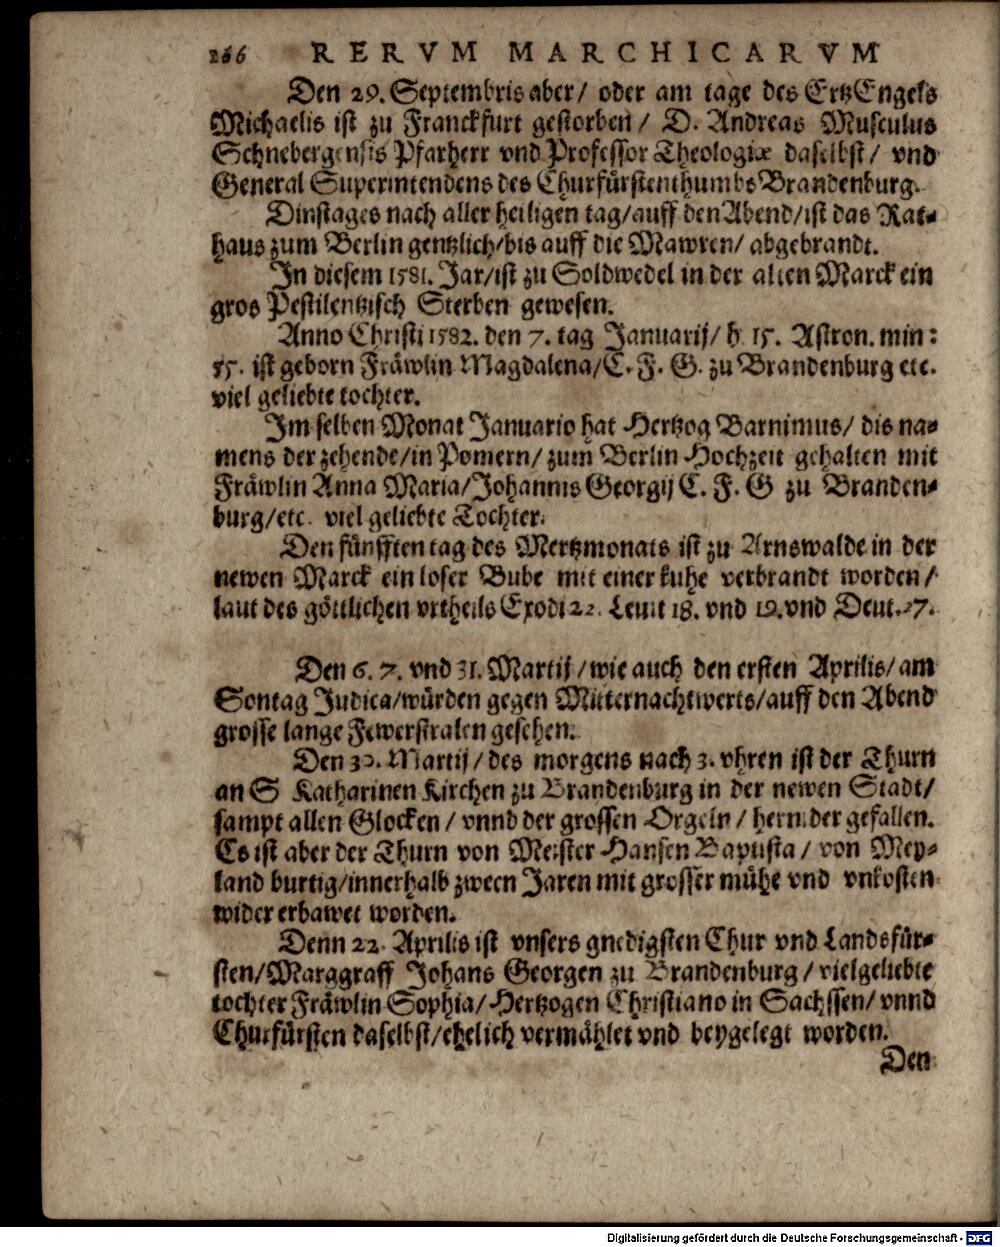 266 RERVM MARCHICARVM
Den 29. Septembris aber/ oder am tage des ErtzEngels
Michaelis ist zu Franckfurt gestorben/ D. Andreas Musculus
Schnebergensis Pfarherr vnd Professor Theologiæ daselbst/ vnd
General Superintendens des Churfürstenthumbs Brandenburg.
Dinstages nach aller heiligen tag/auff den Abend/ist das Rat-
haus zum Berlin gentzlich/bis auff die Mawren/ abgebrandt.
In diesem 1581. Jar/ist zu Soldwedel in der alten Marck ein
gros Pestilentzisch Sterben gewesen.
Anno Christi 1582. den 7. tag Januarij/ h. 15. Astron. min:
55. ist geborn Fräwlin Magdalena/C. F. G. zu Brandenburg etc.
viel geliebte tochter.
Im selben Monat Januario hat Hertzog Barnimus/ dis na-
mens der zehende/in Pomern/ zum Berlin Hochzeit gehalten mit
Fräwlin Anna Maria/Johannis Georgij C. F. G zu Branden-
burg/etc. viel geliebte Tochter.
Den fünfften tag des Mertzmonats ist zu Arnswalde in der
newen Marck ein loser Bube mit einer kuhe verbrandt worden/
laut des göttlichen vrtheils Exodi 22. Leuit 18. vnd 19. vnd Deut. 27.
Den 6. 7. vnd 31. Martij/wie auch den ersten Aprilis/am
Sontag Judica/würden gegen Mitternachtwerts/auff den Abend
grosse lange Fewerstralen gesehen.
Den 30. Martij/ des morgens nach 3. vhren ist der Thurn
an S Katharinen Kirchen zu Brandenburg in der newen Stadt/
sampt allen Glocken/ vnnd der grossen Orgeln/ hernider gefallen.
Es ist aber der Thurn von Meister Hansen Baptista/ von Mey-
land burtig/innerhalb zween Jaren mit grosser mühe vnd vnkosten
wider erbawet worden.
Denn 22. Aprilis ist vnsers gnedigsten Chur vnd Landsfür-
sten/Marggraff Johans Georgen zu Brandenburg/ vielgeliebte
tochter Fräwlin Sophia/ Hertzogen Christiano in Sachssen/ vnnd
Churfürsten daselbst/ehelich vermählet vnd beygelegt worden.
Den
Digitalisierung gefördert durch die Deutsche Forschungsgemeinschaft - DFG